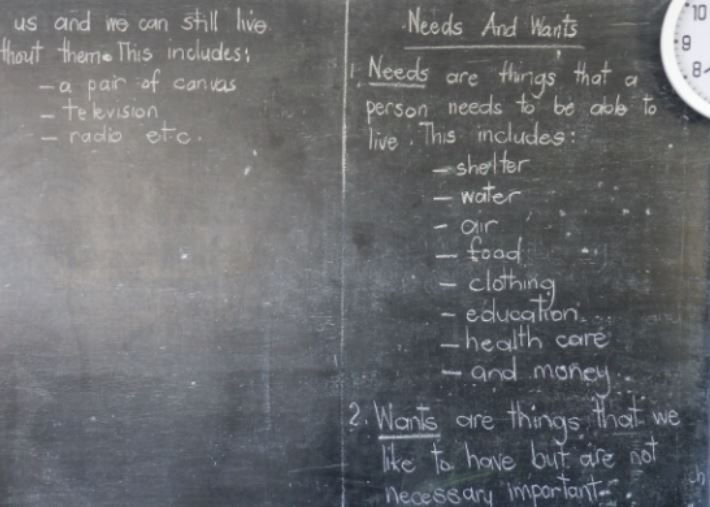 us and we can still live
thout them. This includes:
- a pair of canvas
- television
- radio etc.
Needs And Wants
1. Needs are things that a
person needs to be able to
live. This includes:
- shelter
- water
- air
- food
- clothing
- education
- health care
- and money.
2. Wants are things that we
like to have but are not
necessary important
10
9
8